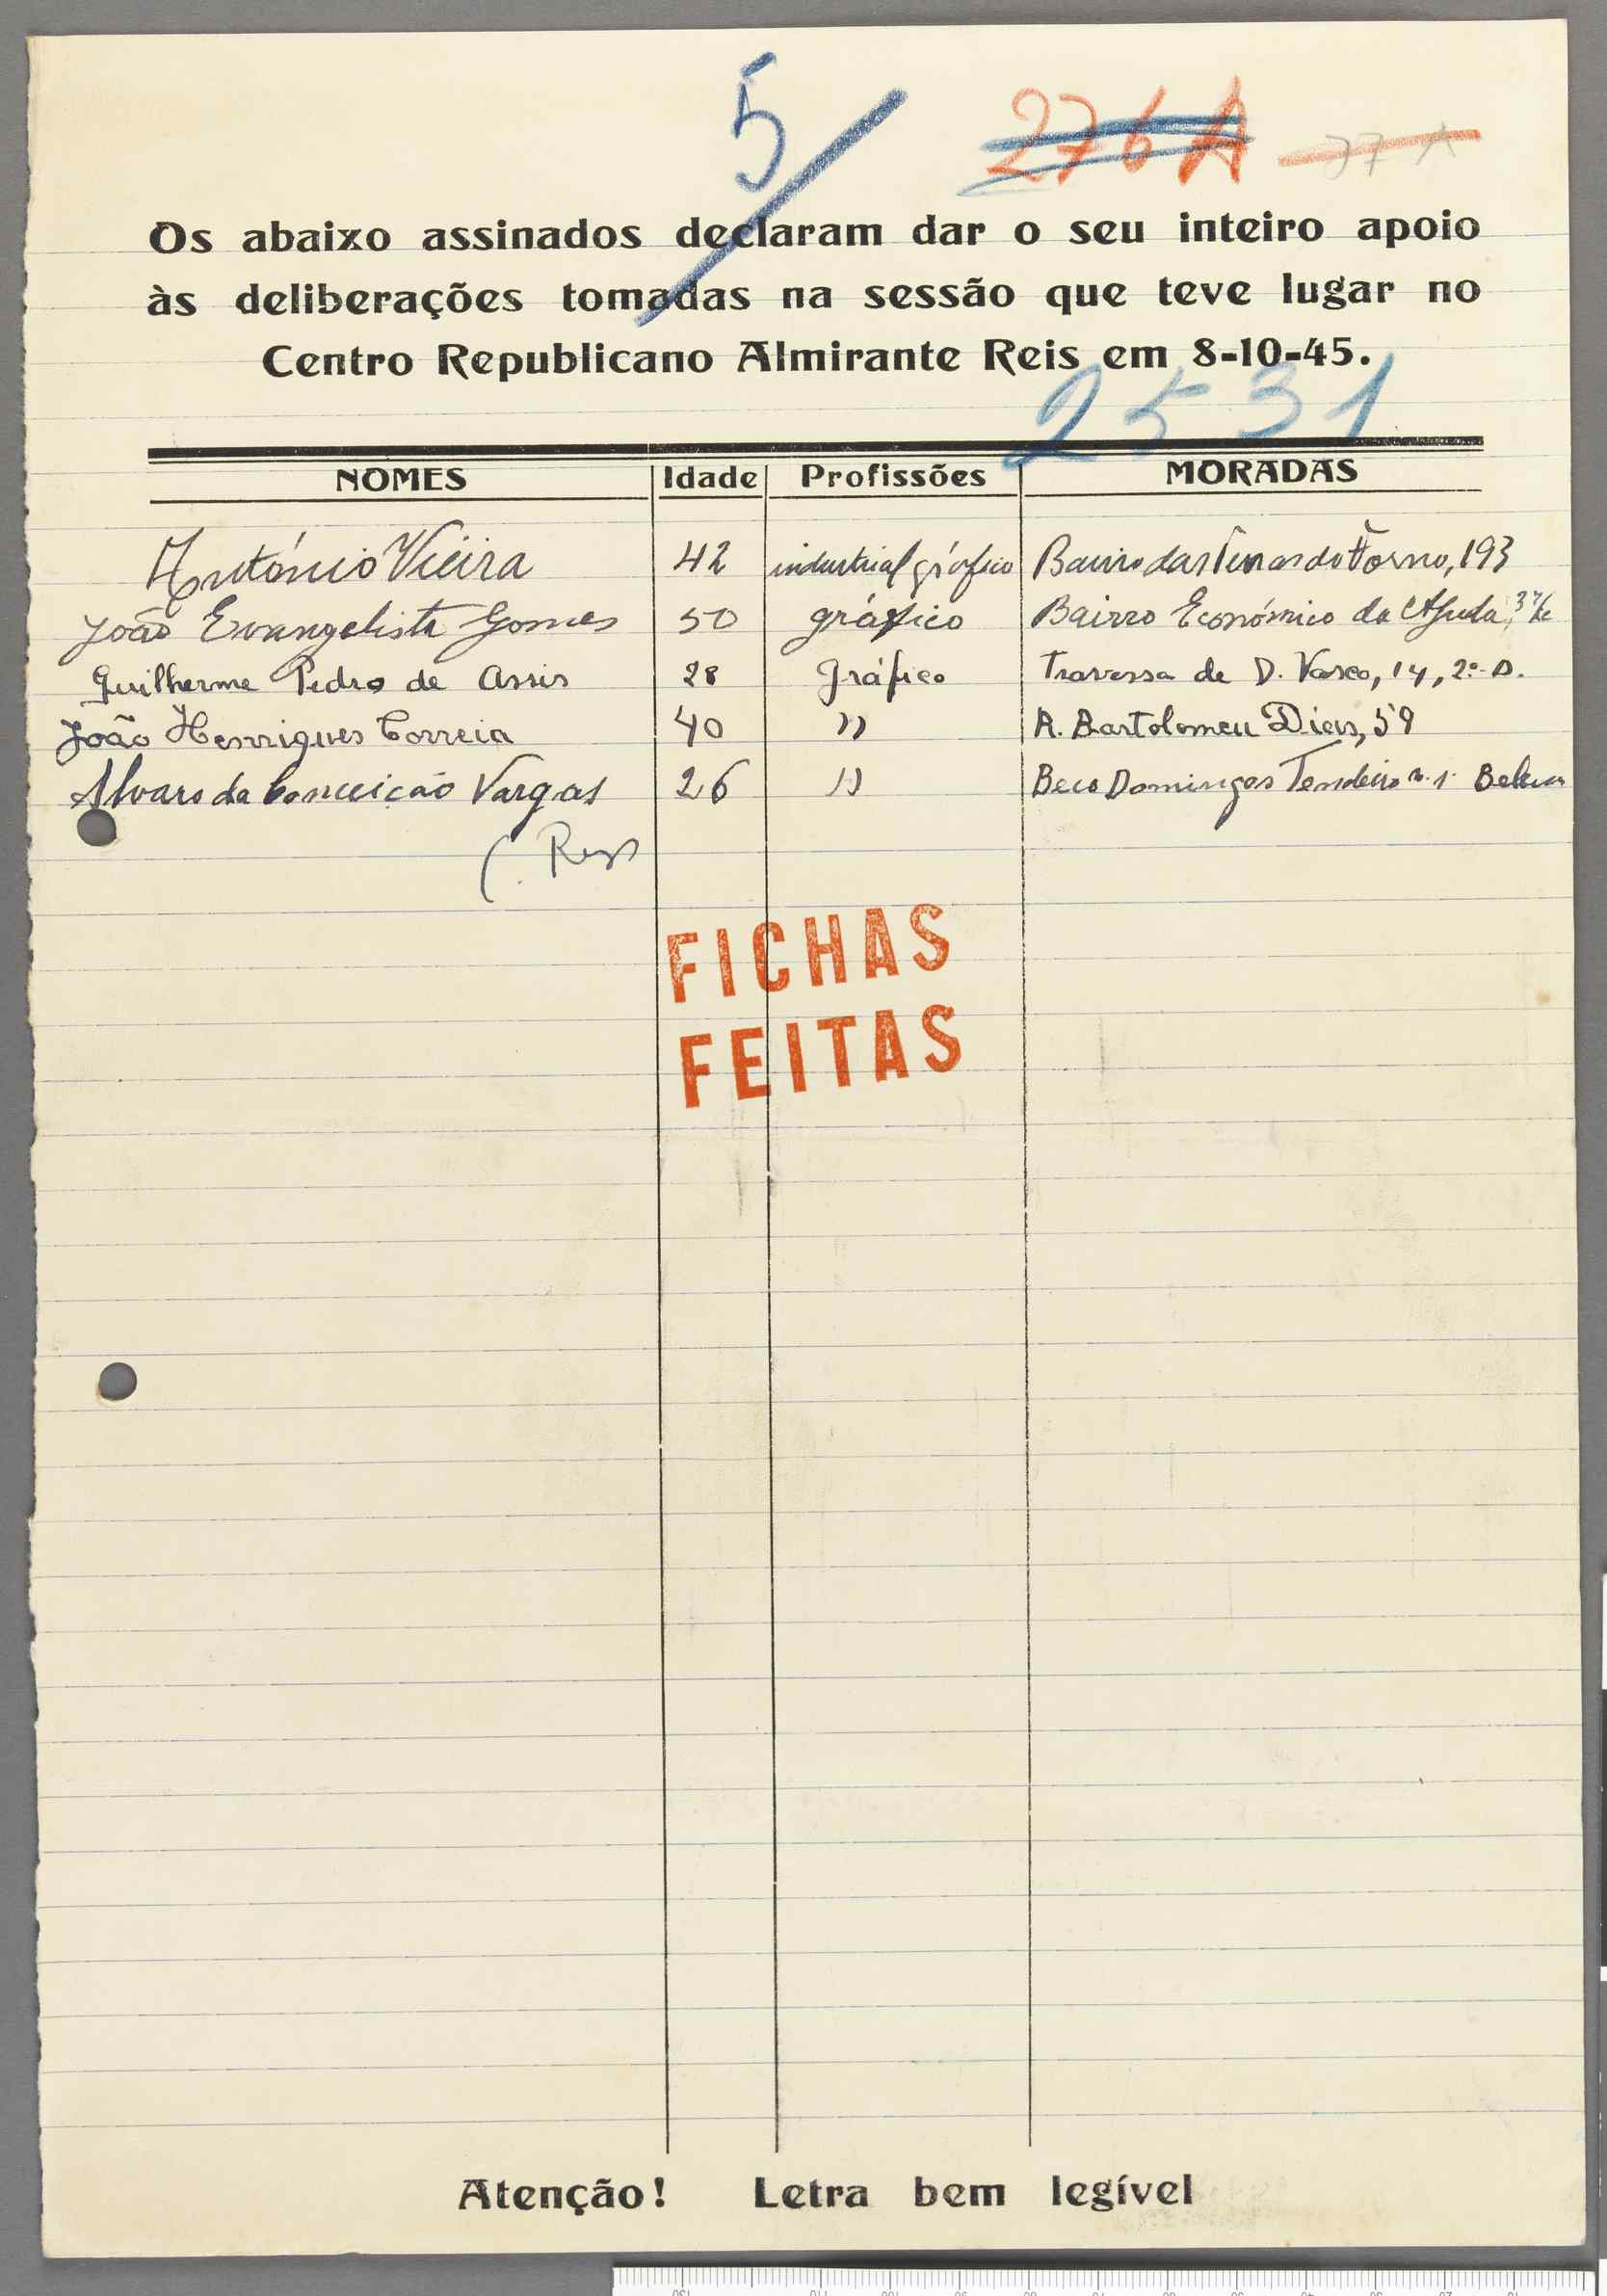 5
276 A 77 A
Os abaixo assinados declaram dar o seu inteiro apoio
às deliberações tomadas na sessão que teve lugar no
Centro Republicano Almirante Reis em 8-10-45.
2531
NOMES Idade Profissões MORADAS
António Vieira 42 industrial gráfico Bairro das Terras do Forno, 193
João Evangelista Gomes 50 gráfico Bairro Económico da Ajuda,
Guilherme Pedro de Assis 28 Gráfico Travessa de D. Vasco, 14, 2º- D.
João Henriques Correia 40 " R. Bartolomeu Dias, 59
Alvaro da Conceição Vargas 26 " Beco Domingos Tendeiro n. 1. Belem
FICHAS
FEITAS
Atenção! Letra bem legível